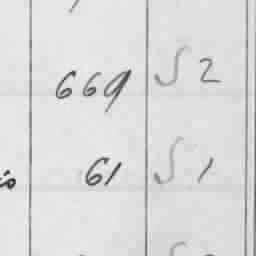 669 S 2
61 S 1